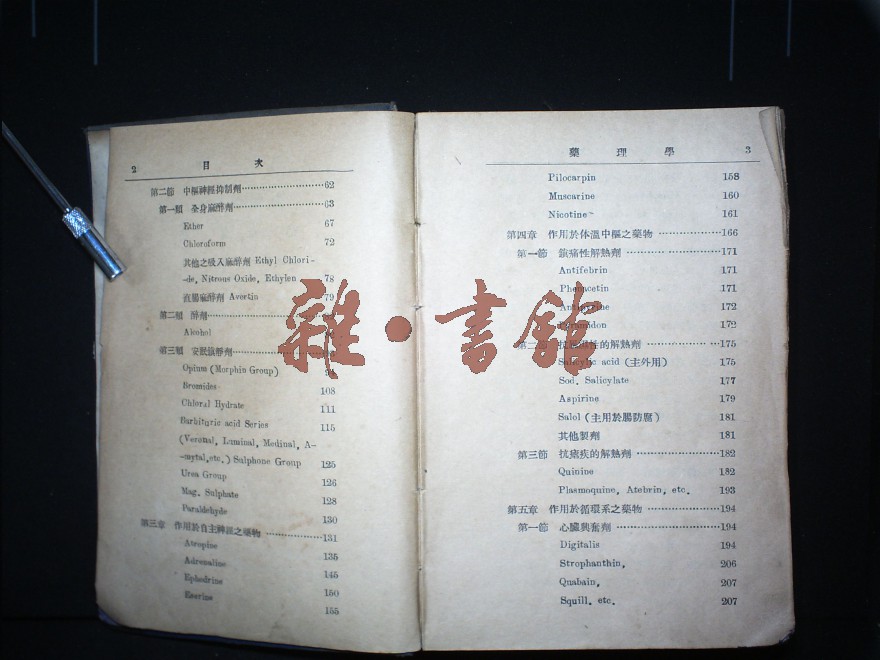 2 目次
第二節 中樞神經抑制劑………………………62
第一類 全身麻醉劑………………………63
Ether 67
Chloroform 72
其他之吸入麻醉劑 Ethyl Chlori-
-de, Nitrous Oxide, Ethylen 78
直腸麻醉劑 Avertin 79
第二類 醇劑
Alcohol
第三類 安眠鎮靜劑
Opium (Morphin Group)
Bromides 108
Chloral Hydrate 111
Barbituric acid Series 115
(Veronal, Luminal, Medinal, A-
-mytal, etc.) Sulphone Group 125
Urea Group 126
Mag. Sulphate 128
Paraldehyde 130
第三章 作用於自主神經之藥物………………131
Atropine 135
Adrenaline 145
Ephedrine 150
Eserine 155
藥理學 3
Pilocarpin 158
Muscarine 160
Nicotine 161
第四章 作用於体溫中樞之藥物………………166
第一節 鎮痛性解熱劑………………………171
Antifebrin 171
Phenacetin 171
Antipyrine 172
172
第二節 的解熱劑………………175
Salicylic acid (主外用) 175
Sod. Salicylate 177
Aspirine 179
Salol (主用於腸防腐) 181
其他製劑 181
第三節 抗瘧疾的解熱劑………………………182
Quinine 182
Plasmoquine, Atebrin, etc. 193
第五章 作用於循環系之藥物………………194
第一節 心臟興奮劑………………………194
Digitalis 194
Strophanthin, 206
Quabain, 207
Squill, etc. 207
雜·書館